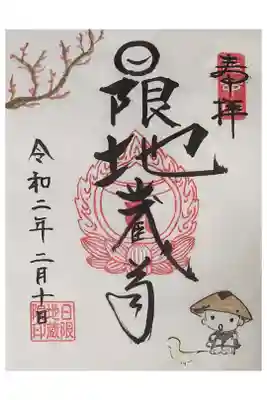 奉拝
日限地蔵
令和二年二月十日
日限
地蔵
院印